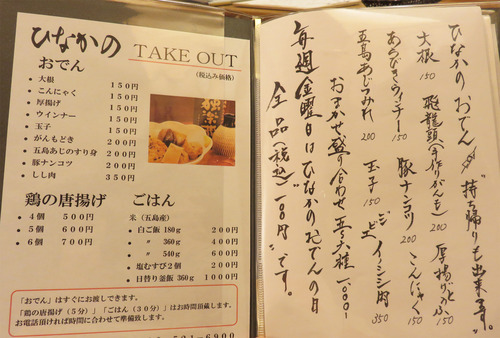 ひなかの TAKE OUT
(税込み価格)
おでん
・大根 150円
・こんにゃく 150円
・厚揚げ 150円
・ウインナー 150円
・玉子 150円
・がんもどき 200円
・五島あじのすり身 200円
・豚ナンコツ 200円
・しし肉 350円
鶏の唐揚げ
・4個 500円
・5個 600円
・6個 700円
ごはん
米(五島産)
・白ご飯 180g 200円
・〃 360g 400円
・〃 540g 600円
・塩むすび2個 200円
・日替り釜飯 360g 1000円
「おでん」はすぐにお渡しできます。
「鶏の唐揚げ(5分)」「ごはん(30分)」はお時間頂戴します。
お電話頂ければ時間に合わせて準備致します。
521-6900
ひなかのおでん〆"持ち帰りも出来ます。"
大根 150 飛龍頭(手作りがんも) 200 厚揚げどうふ 150
あらびきウィンナー 150 豚ナンコツ 200 こんにゃく 150
五島あじつみれ 200 玉子 150 ジビエイノシシ肉 350
おまかせ盛り合わせ 五ヶ大椎 1000-
毎週金曜日はひなかのおでんの日
全品(税込)一〇〇円"です。